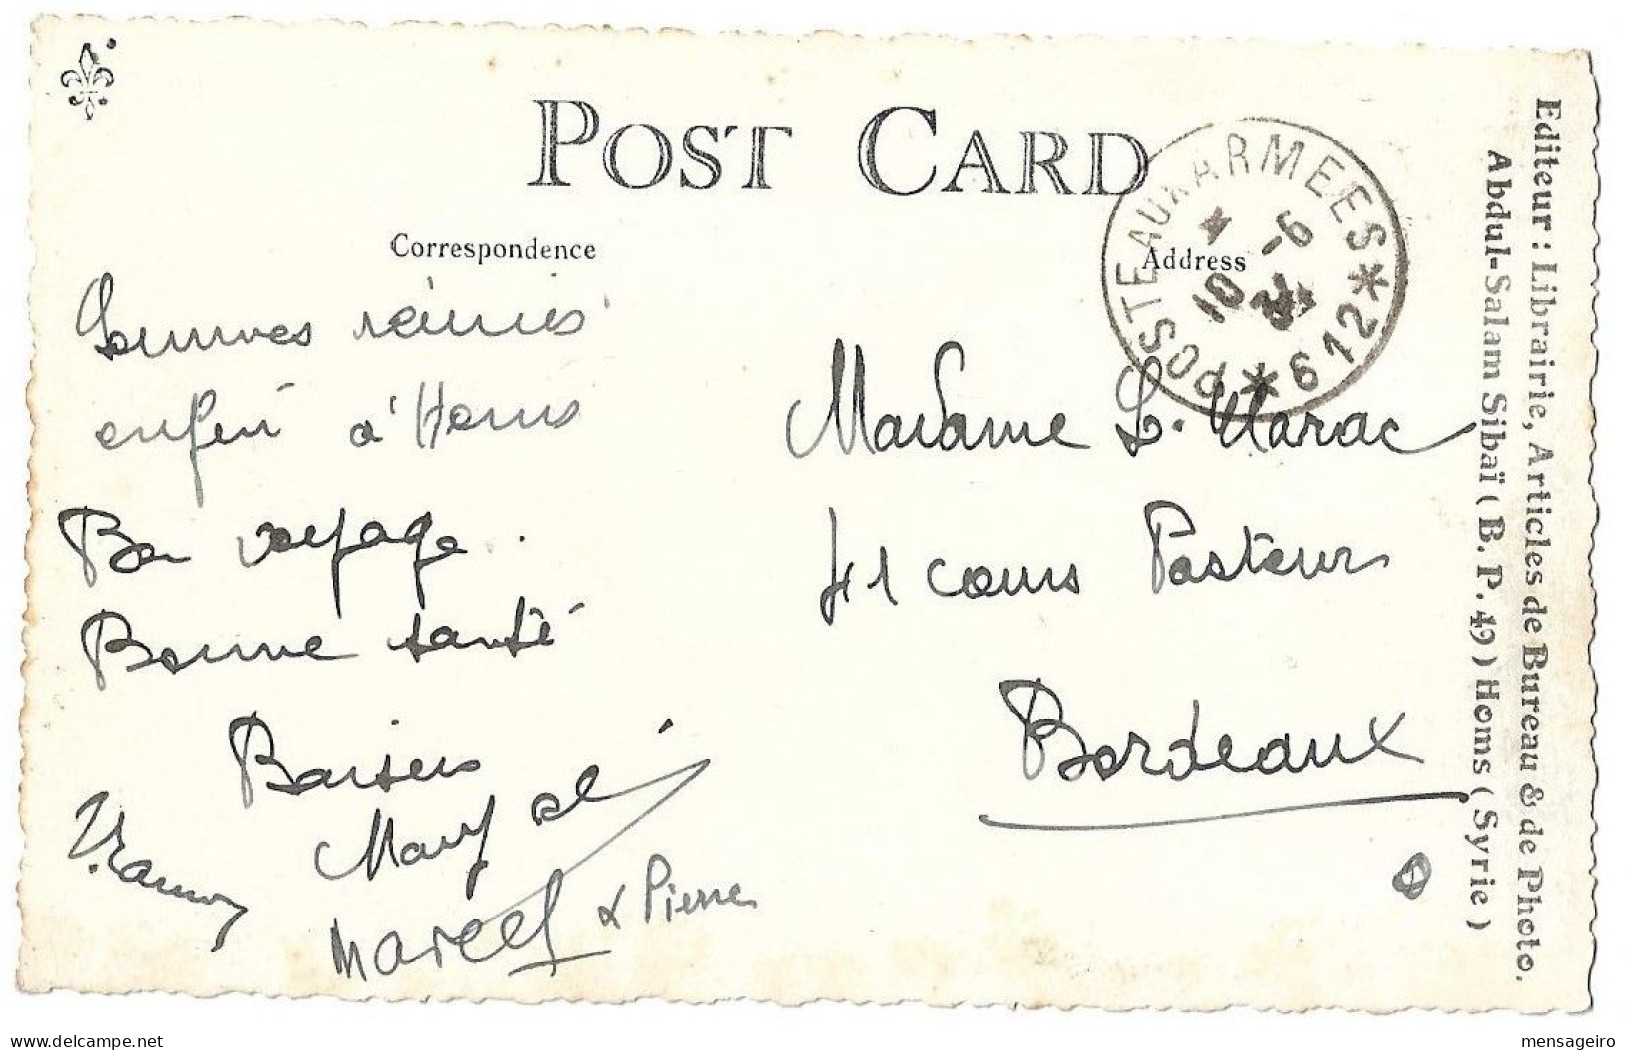 POST CARD
Correspondence
Address
POSTE AUX ARMEES
* 612 *
10 -6
Sommes réunis
enfin à Homs
Bon voyage.
Bonne santé
Baisers
Mary et
Marcel & Pierre
Madame L. Marac
41 cours Pasteur
Bordeaux
Editeur : Librairie, Articles de Bureau & de Photo.
Abdul-Salam Sibaï ( B. P. 49 ) Homs ( Syrie )
mensageiro